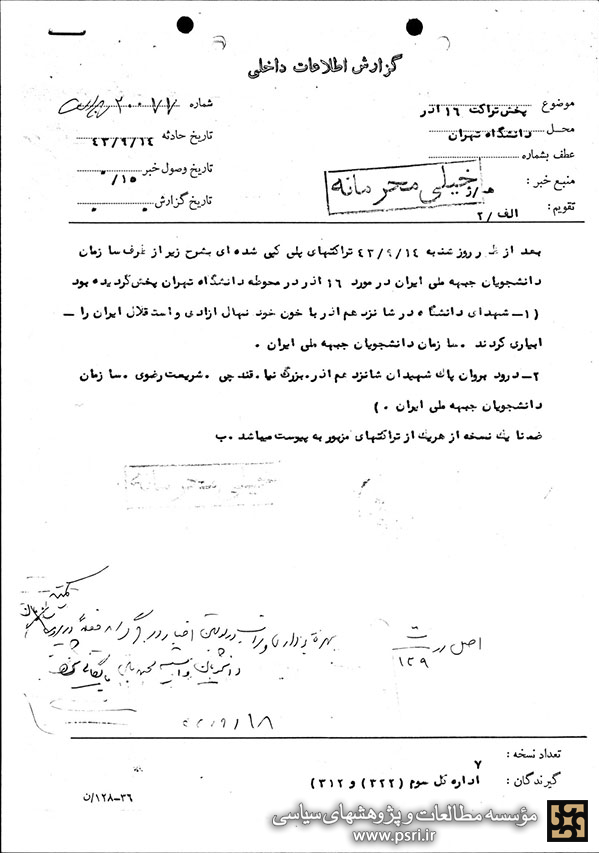 گزارش اطلاعات داخلی
موضوع پخش تراکت ۱۶ آذر
شماره ۲۰۰۷۷
محل دانشگاه تهران
تاریخ حادثه ۴۳/۹/۱۴
عطف بشماره
تاریخ وصول خبر ۱۵/
منبع خبر :
خیلی محرمانه
تاریخ گزارش
تقویم : الف /۲
بعد از ظهر روز شنبه ۴۳/۹/۱۴ تراکتهای پلی کپی شده ای بشرح زیر از طرف سازمان
دانشجویان جبهه ملی ایران در مورد ۱۶ آذر در محوطه دانشگاه تهران پخش گردیده بود
(۱- شهدای دانشگاه در شانزدهم آذر با خون خود نهال ازادی و استقلال ایران را -
ابیاری کردند . سازمان دانشجویان جبهه ملی ایران .
۲- درود بروان پاک شهیدان شانزدهم آذر . بزرگ نیا . قندچی . شریعت رضوی . سازمان
دانشجویان جبهه ملی ایران . )
ضمنا یک نسخه از هریک از تراکتهای مزبور به پیوست میباشد . ب
اصل در
۱۲۹
تعداد نسخه : ۷
گیرندگان : اداره کل سوم (۳۲۲) و ۳۱۲)
۳۶-۱۲۸/ن
مؤسسه مطالعات و پژوهشهای سیاسی
www.psri.ir